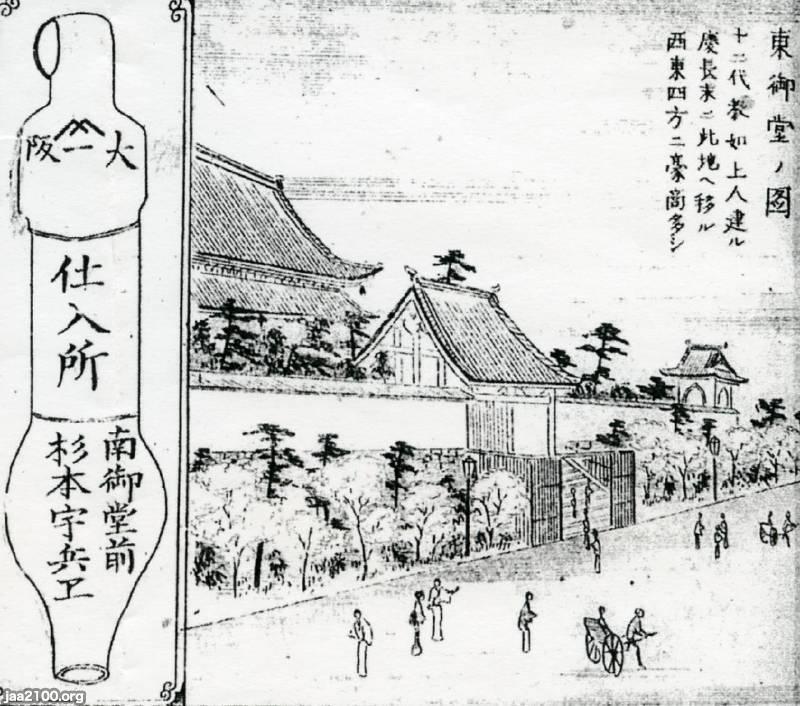 東御堂ノ図
十二代教如上人建ル
慶長末ニ此地ヘ移ル
西東四方ニ豪商多シ
大一阪
仕入所
南御堂前
杉本宇兵ヱ
jaa2100.org